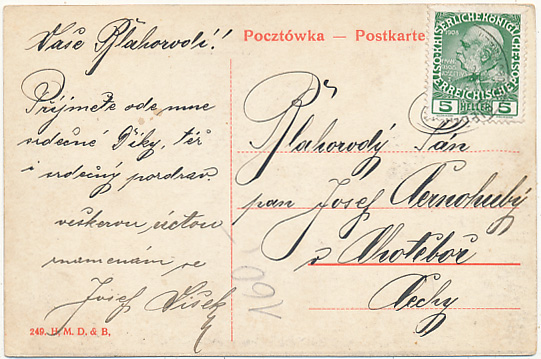 Vaše Blahorodí!
Přijmete ode mne
srdečné Díky, též
i srdečný pozdrav.
veškerou úctou
znamenám se
Josef Šišek
249. H. M. D. & B.
Pocztówka — Postkarte
Blahorodý Pán
pan Josef Černohubý
v Chotěboř
Čechy
190
KAISERLICHE KÖNIGLICHE
ÖSTERREICHISCHE
5 HELLER 5